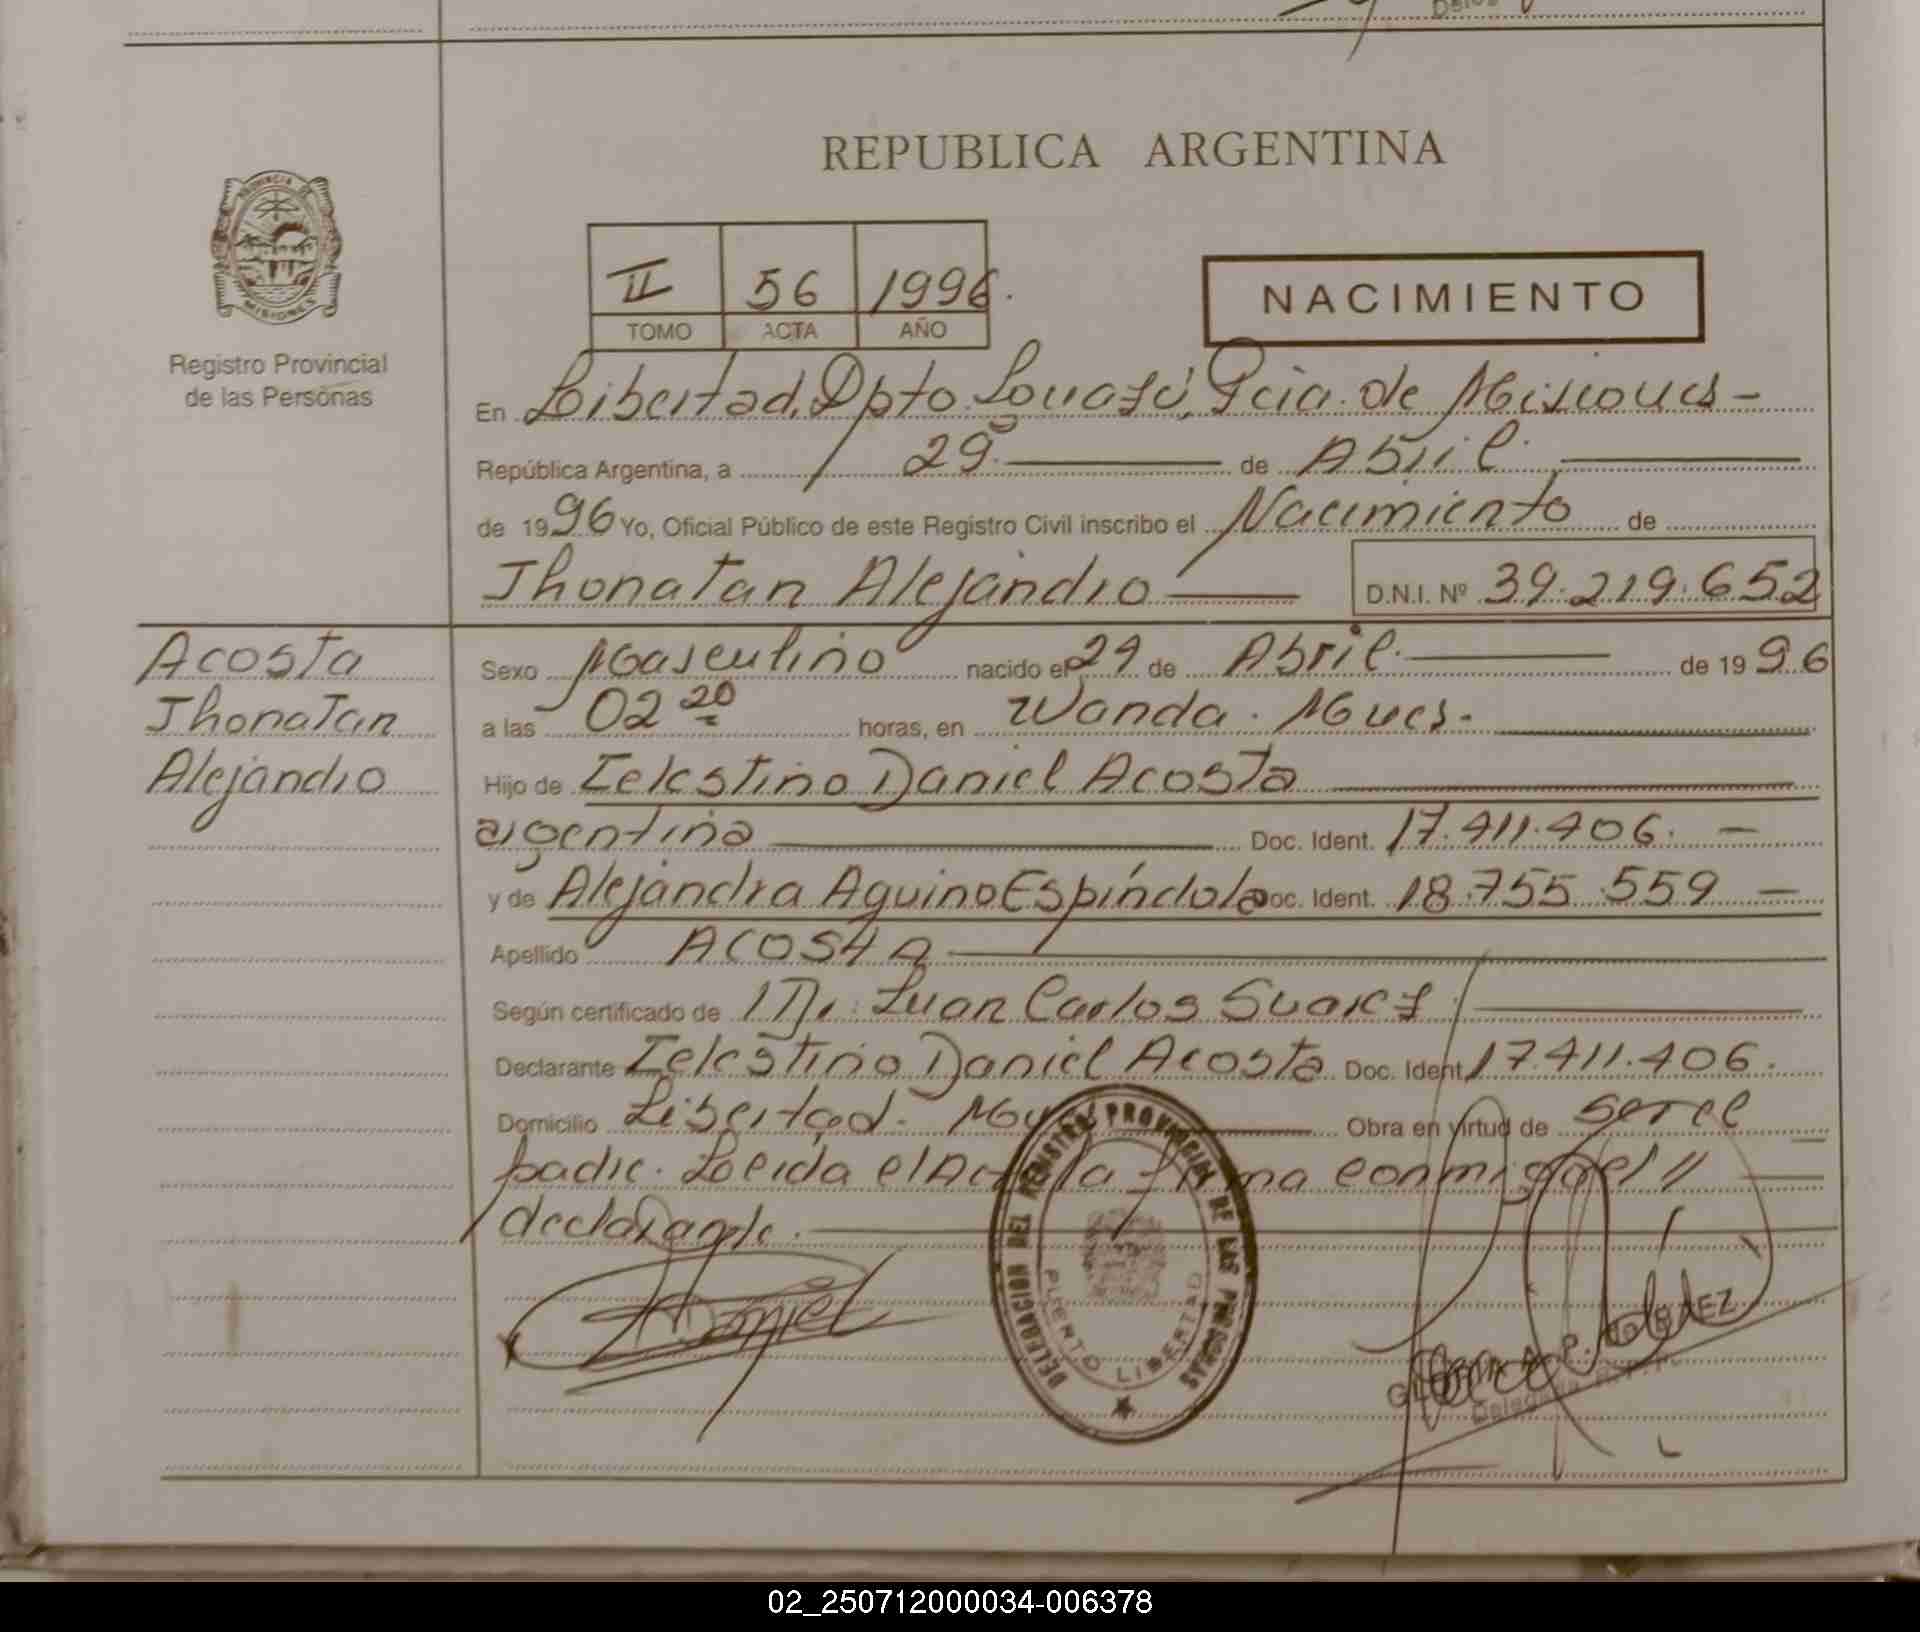 REPUBLICA ARGENTINA
PROVINCIA DE MISIONES
Registro Provincial
de las Personas
II 56 1996.
TOMO ACTA AÑO
NACIMIENTO
En Libertad, Dpto. Iguazú, Pcia. de Misiones -
República Argentina, a 29 de Abril.
de 1996 Yo, Oficial Público de este Registro Civil inscribo el Nacimiento de
Jhonatan Alejandro D.N.I. Nº 39.219.652
Acosta
Jhonatan
Alejandro
Sexo Masculino nacido el 29 de Abril. de 1996
a las 02 20 horas, en Wanda. Mnes.
Hijo de Celestino Daniel Acosta
argentina Doc. Ident. 17.411.406. -
y de Alejandra Aquino Espíndola Doc. Ident. 18.755.559 -
Apellido ACOSTA
Según certificado de Dr. Juan Carlos Suarez
Declarante Celestino Daniel Acosta Doc. Ident. 17.411.406.
Domicilio Libertad. Obra en virtud de ser el
padre. Leida el Acta la firma conmigo el //
declarante.
Daniel
DELEGACION DEL REGISTRO PROVINCIAL DE LAS PERSONAS
PUERTO LIBERTAD
02_250712000034-006378